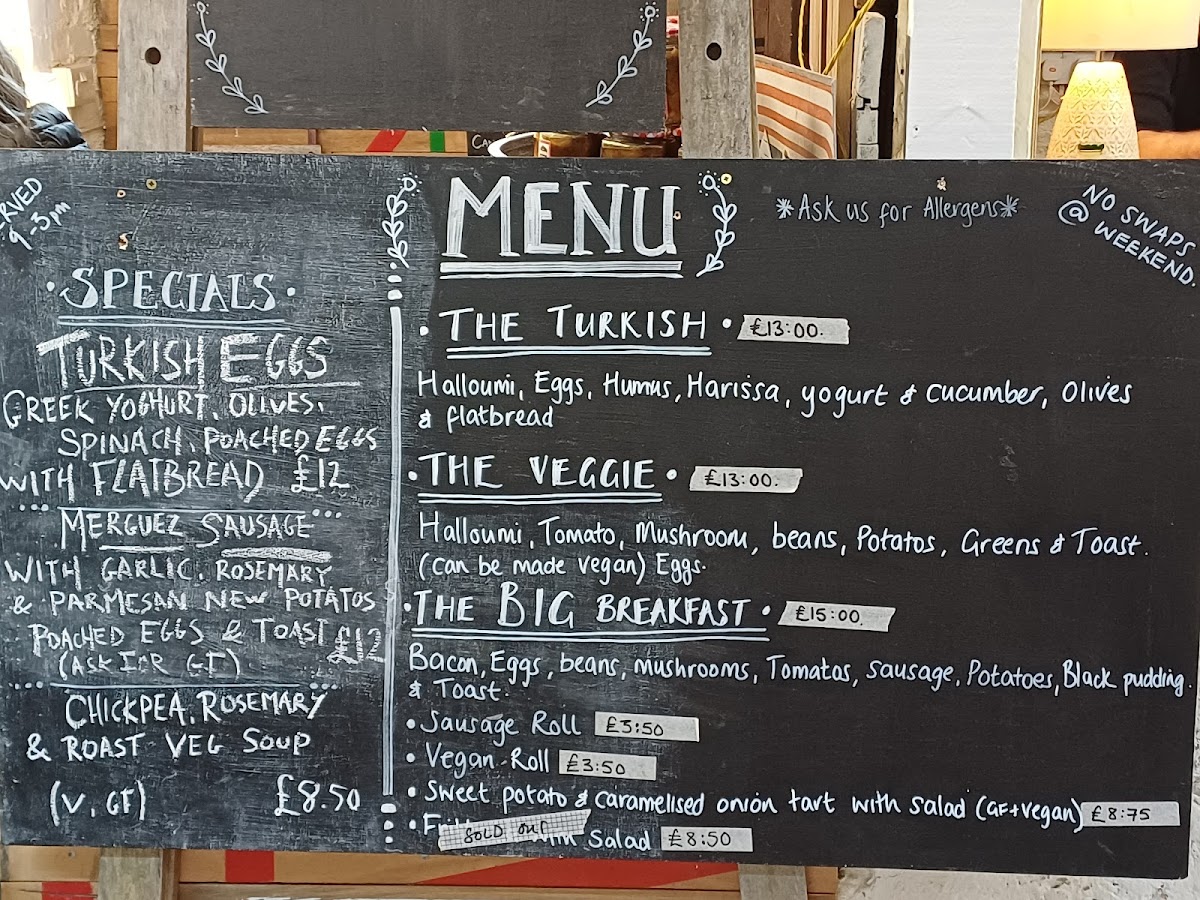 9-3pm
SPECIALS
TURKISH EGGS
GREEK YOGHURT, OLIVES,
SPINACH, POACHED EGGS
WITH FLATBREAD £12
MERGUEZ SAUSAGE
WITH GARLIC, ROSEMARY
& PARMESAN NEW POTATOS
POACHED EGGS & TOAST £12
(ASK FOR GF)
CHICKPEA, ROSEMARY
& ROAST VEG SOUP
(V, GF) £8.50
MENU
*Ask us for Allergens*
NO SWAPS
@ WEEKEND.
• THE TURKISH • £13:00.
Halloumi, Eggs, Humus, Harissa, yogurt & cucumber, Olives
& flatbread
• THE VEGGIE • £13:00.
Halloumi, Tomato, Mushroom, beans, Potatos, Greens & Toast.
(can be made vegan) Eggs.
• THE BIG BREAKFAST • £15:00.
Bacon, Eggs, beans, mushrooms, Tomatos, sausage, Potatoes, Black pudding.
& Toast.
• Sausage Roll £3:50
• Vegan Roll £3:50
• Sweet potato & caramelised onion tart with salad (GF+vegan) £8:75
• SOLD OUT Salad £8:50